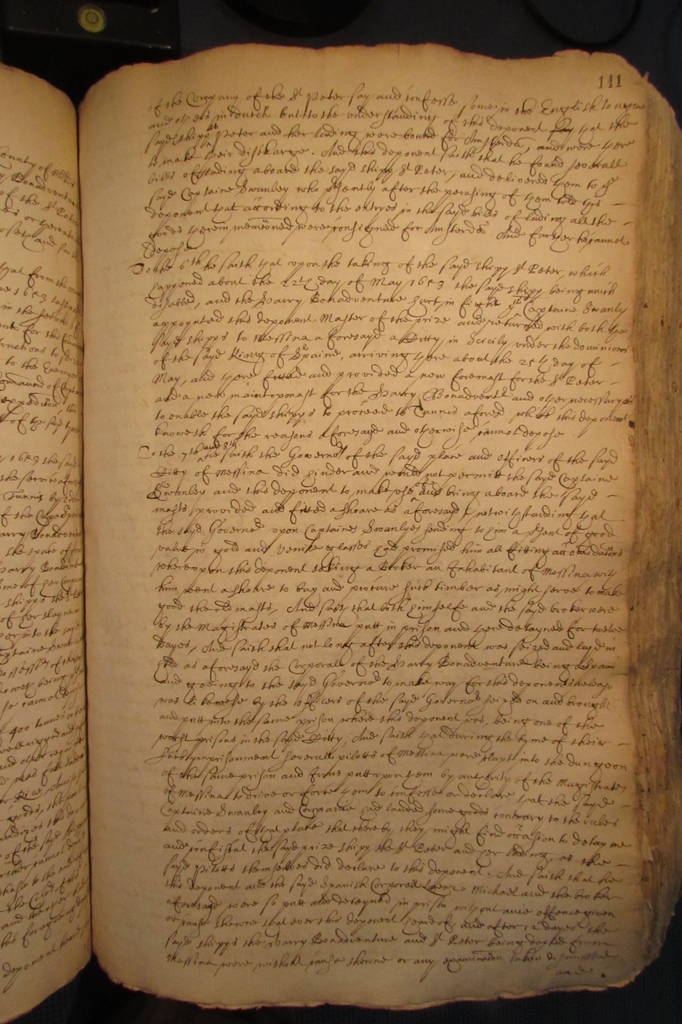 111
of the Company of the St Peter say and confesse some in the English tongue
and others in dutch but to the understanding of this deponent that the
sayd shipp St Peter and her lading were bound for Amsterdam, and were there
to make their discharge. And this deponent saith that he found severall
bills of lading aboard the sayd shipp St Peter, and delivered them to the
sayd Captaine Swanley who presently after the perusing of them told this
deponent that according to the entryes in the sayd bills of lading all the
goods therein mentioned were consigned for Amsterdam And further hee cannot
depose
To the 6th he saith that upon the taking of the sayd shipp St Peter, which
happened about the day of May 1653 the sayd shipp being much
disabled, and the Harry Bonadventure hurt in fight the Captaine Swanley
appoynted this deponent Master of the prize and returned with both the
sayd shipps to Messina aforesayd a Citty in Sicily under the dominions
of the sayd King of Spaine, arriving there about the 25th day of
May, and there fitted and provided a new foremast for the St Peter
and a new maintopmast for the Harry Bonadventure and other necessaryes
to enable the sayd shipps to proceede to Tunnis aforesd which this deponent
knoweth for the reasons aforesayd and otherwise cannot depose
To the 7th and 8th he saith the Governor of the sayd place and officers of the sayd
Citty of Messina did hinder and would not permitt the sayd Captaine
Swanley and this deponent to make use and bring aboard the sayd
masts, provided and fitted ashoare as aforesayd notwithstanding that
the sayd Governor upon Captaine Swanleys sending to him a present of good
value in gold and Venice glasses had promised him all fitting accomodations
whereupon this deponent taking a Broker an Inhabitant of Messina with
him went ashoare to buy and procure such timber as might serve to make
good the sd masts, And saith that both himselfe and the sayd broker were
by the Magistrates of Messina putt in prison and there detayned for twelve
dayes, And saith that not long after this deponent was seized and layd in
hold as aforesayd the Corporall of the Harry Bonadventure being a Spaniard
and goeing to the sayd Governor to make way for this deponents release
was likewise by the Officers of the sayd Governor seized on and brought
and putt into the same prison where this deponent was, being one of the
worst prisons in the sayd Citty, And saith that during the tyme of their
imprisonment severall pilotts of Messina were putt into the dungeon
of the same prison and irons putt upon them by authority of the Magistrates
of Messina to drive or force them to confesse or declare that the sayd
Captaine Swanley and Companie had landed some goods contrary to the rules
and orders of that place that thereby they might find occasion to detayne
and confiscat the sayd prize shipp the St Peter and her lading, as the
sayd Pilotts themselves did declare to this deponent. And saith that he
this deponent and the sayd Spanish Corporall Michael and the broker
aforesayd were so putt and detayned in prison without any offence given
or cause showne that ever this deponent heard of And after 12 dayes the
sayd shipps the Harry Bonadventure and St Peter being forced from
Messina were without cause showne or any examination taken